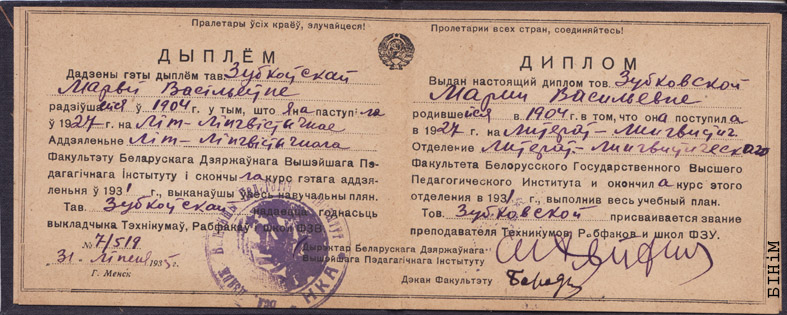 Пралетары ўсіх краёў, злучайцеся!
ДЫПЛЁМ
Дадзены гэты дыплём тав. Зубкоўскай
Марыі Васільеўне
радзіўшейся ў 1904 г. у тым, што Яна паступіла
ў 1927 г. на Літ-Лінгвістычнае
Аддзяленьне Літ-Лінгвістычнага
Факультэту Беларускага Дзяржаўнага Вышэйшага Пэ-
дагагічнага Інстытуту і скончыла курс гэтага аддзя-
леньня ў 1931 г., выканаўшы ўвесь навучальны плян.
Тав. Зубкоўскай надаецца годнасьць
выкладчыка Тэхнікумаў, Рабфакаў і школ ФЗВ.
№ 7/519
31 Ліпеня 193
Г. Менск
Пролетарии всех стран, соединяйтесь!
ДИПЛОМ
Выдан настоящий диплом тов. Зубковской
Марии Васильевне
родившейся в 1904 г. в том, что она поступила
в 1927 г. на Литерат-Лингвистич.
Отделение Литерат-Лингвистического
Факультета Белорусского Государственного Высшего
Педагогического Института и окончила курс этого
отделения в 1931 г., выполнив весь учебный план.
Тов. Зубковской присваивается звание
преподавателя Техникумов, Рабфаков и школ ФЗУ.
Дырэктар Беларускага Дзяржаўнага
Вышэйшага Пэдагагічнага Інстытуту
Дэкан Факультэту
БІНіМ